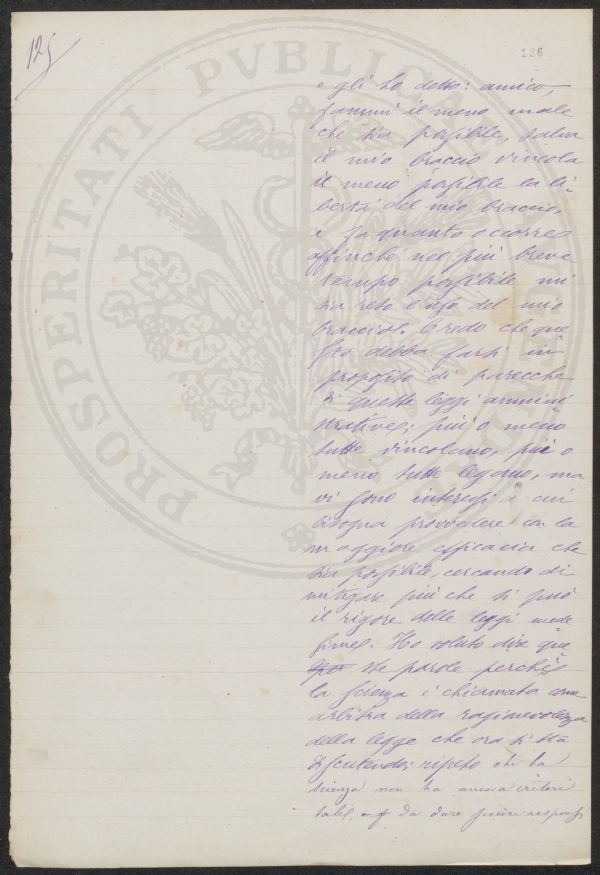 125
126
PROSPERITATI PVBLICAE
e gli ho detto: amico,
fammi il meno male
che sia possibile, salva
il mio braccio vincola
il meno possibile la li-
bertà del mio braccio,
e fa quanto occorre
affinché nel più breve
tempo possibile mi
sia reso l'uso del mio
braccio. Credo che que
sto debba farsi in
proposito di parecchie
di queste leggi ammini
strative; più o meno
tutte vincolano, più o
meno tutte legano, ma
vi sono interessi a cui
bisogna provvedere con la
maggiore efficacia che
sia possibile, cercando di
mitigare più che si può
il rigore delle leggi mede
sime. Ho voluto dire que
ste parole perchè
la scienza è chiamata come
arbitra della ragionevolezza
della legge che ora si sta
discutendo; ripeto che la
scienza non ha ancora criteri
da dare